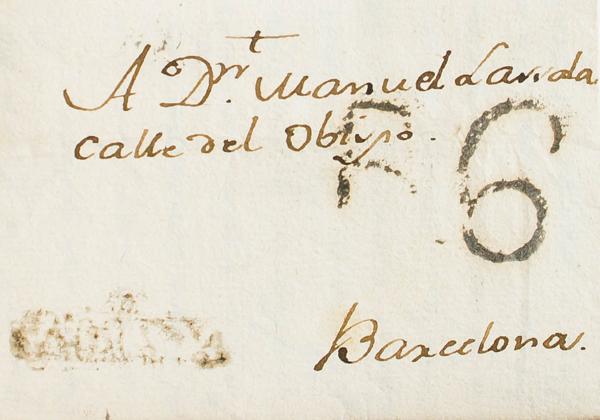 A Dn. Manuel Larrda
Calle del Obispo.
R 6
Barcelona.